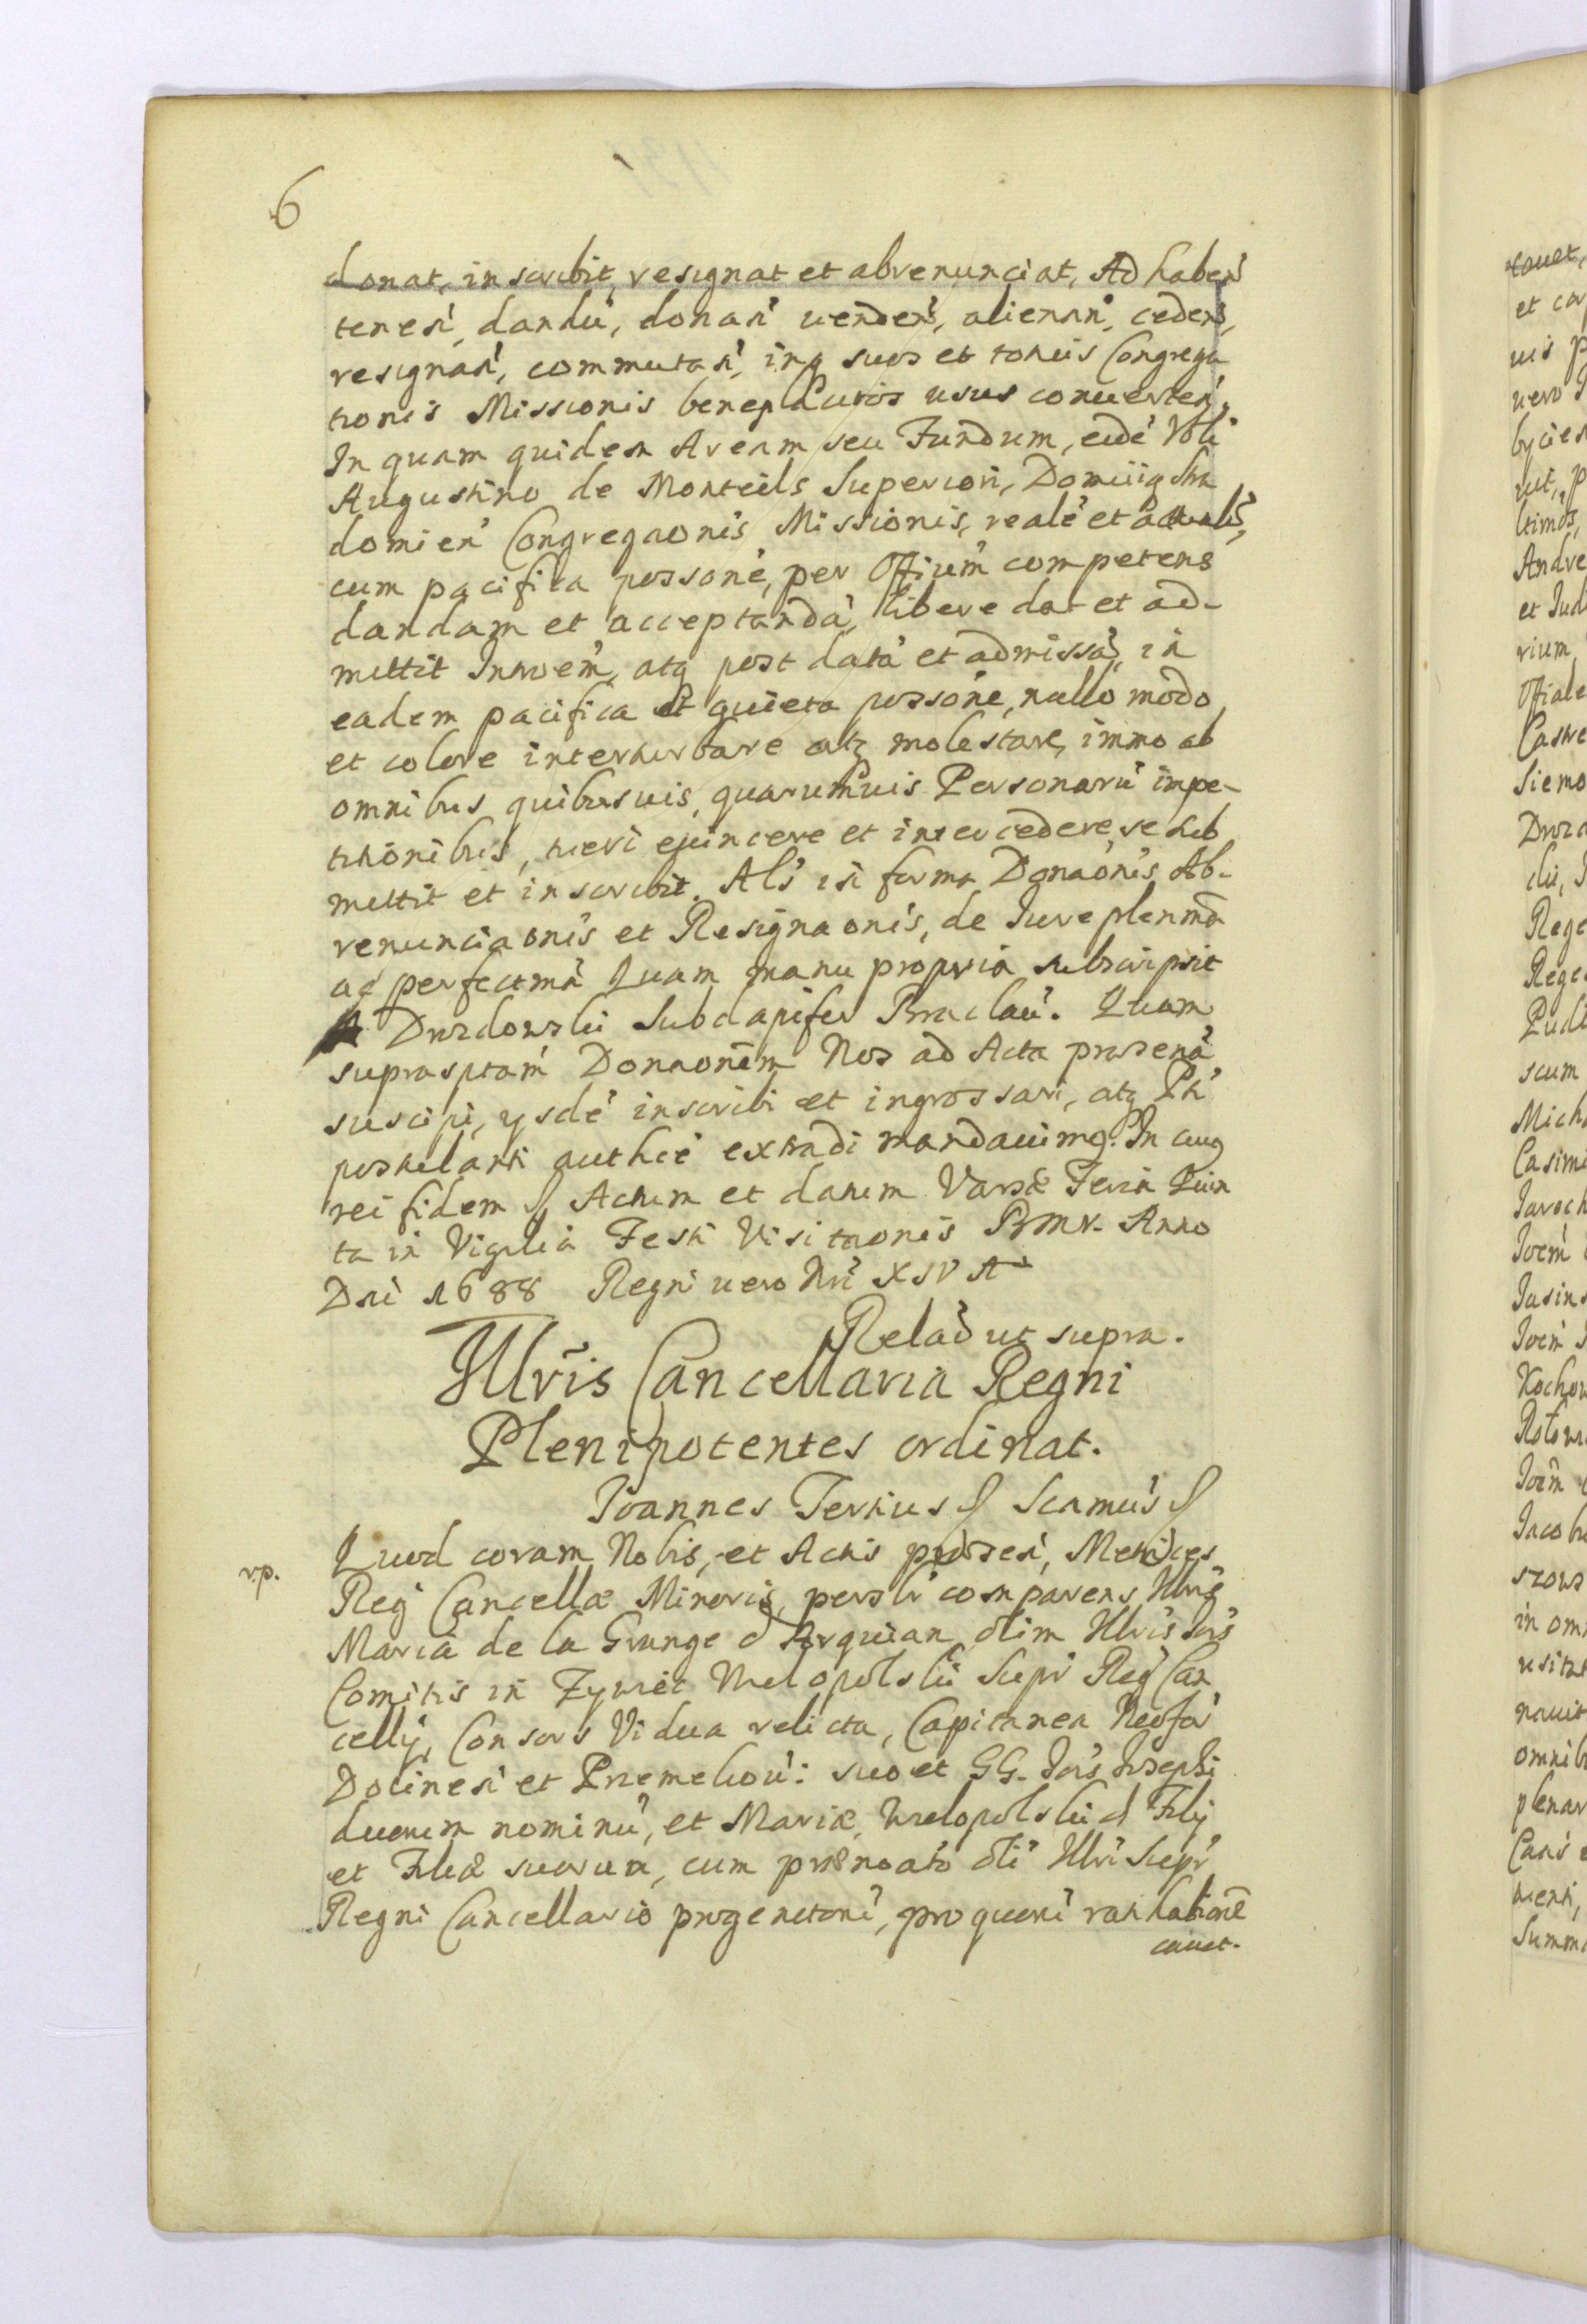 6
donat, inscribit, resignat et abrenunciat, Ad haben̄
tenen̄, dandū, donan̄ venden̄, alienan̄, ceden̄,
resignan̄, commutan̄, inq suos et totius Congrega
tionis Missionis beneplacitos usus conuerten̄.
In quam quidem Aream seu Fundum, eidē Vbli
Augustino de Monteils Superiori, Domuiq Stra
domien̄ Congregaonis Missionis, realē et actualē,
cum pacifica possone, per Offium competens
dandam et acceptandā, libere dat et ad-
mittit Introem̄, atq post datā et admissā, in
eadem pacifica et quieta possone, nullo modo
et colore inturbare atq molestare, immo ab
omnibus quibusuis, quarumuis Personarū impe-
titionibus, tueri euincere et intercedere, se sub
mittit et inscribit. Als in forma Donaonis Ab-
renunciaonis et Resignaonis, de Jure plenmā
ac perfectmā Quam manu propria subscripsit
A Drozdowski Subdapifer Braclau. Quam
suprasptam Donaonem Nos ad Acta præsenā
suscipi, ysdē inscribi et ingrossari, atq Pti
postulanti authcē extradi mandauimq. In cuiq
rei fidem ꝭ Actum et datum Varsæ Feria Quin
ta in Vigilia Festi Visitaonis BMV. Anno
Dni 1688 Regni vero Nri XIV A
Relaō ut supra.
Illris Cancellaria Regni
Plenipotentes ordinat.
Joannes Tertius ꝭ Scamus ꝭ
v.p.
Quod coram Nobis, et Actis præsen̄, Metrices
Reg Cancellæ Minoris, persltr comparens Illris
Maria de la Grange d Arquian, olim Illris Jois
Comitis in Zywiec Wielopolski Supr Reg Can
cellȳ, Consors Vidua relicta, Capitanea Neofor
Dolinen̄ et Premeticov̄: suo et GG. Jois Josephi
duorum nominū, et Mariæ, Wielopolskich Filȳ
et Filiæ suorum, cum prænoato oli Illri Supr
Regni Cancellario progenitori, pro quori ratihabitione
cauet.